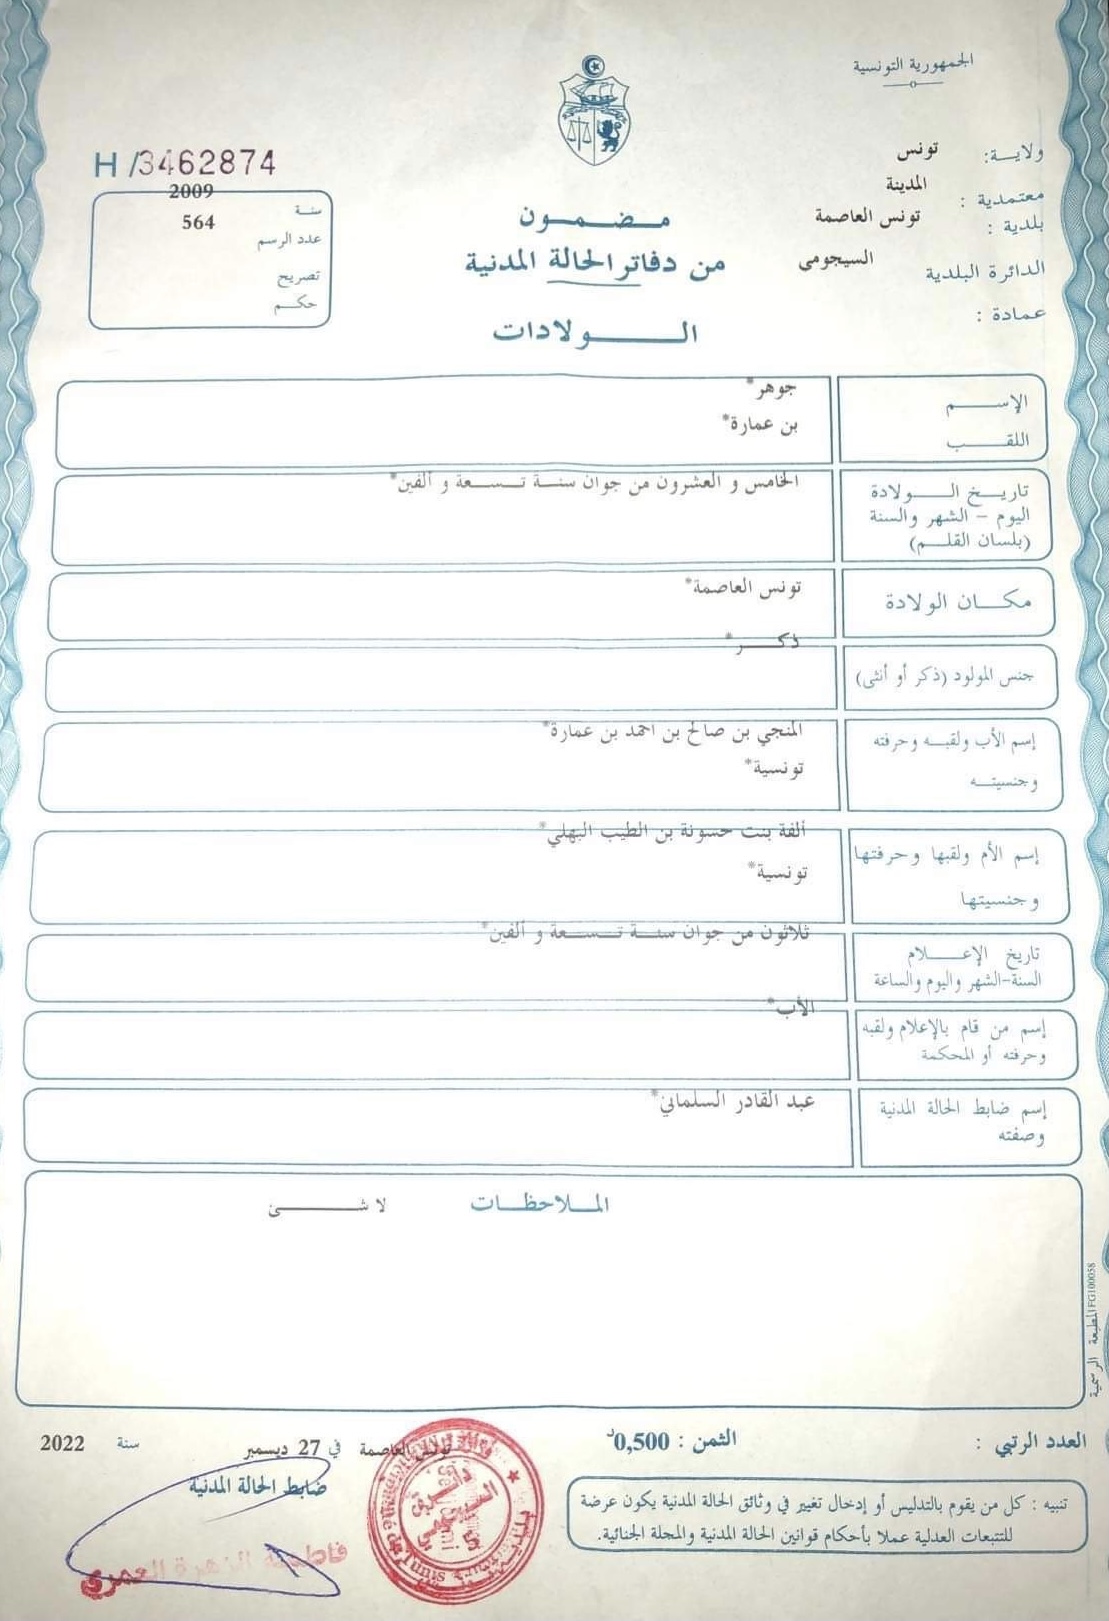 الجمهورية التونسية
ولايـة: تونس
معتمدية : المدينة
بلدية : تونس العاصمة
الدائرة البلدية السيجومى
عمادة :
H /3462874
سنـة 2009
عدد الرسم 564
تصريح
حكـم
مـضـمـون
من دفاتر الحالة المدنية
الـولادات
الإسـم جوهر*
اللقـب بن عمارة*
تاريـخ الـولادة الخامس و العشرون من جوان سنـة تـسـعة و ألفين*
اليوم - الشهر والسنة
(بلسان القلـم)
مكـان الولادة تونس العاصمة*
جنس المولود (ذكر أو أنثى) ذكـر*
إسم الأب ولقبـه وحرفته المنجي بن صالح بن احمد بن عمارة*
وجنسيتـه تونسية*
إسم الأم ولقبها وحرفتها ألفة بنت حسونة بن الطيب البهلي*
وجنسيتها تونسية*
تاريخ الإعـلام ثلاثون من جوان سنـة تـسـعة و ألفين*
السنة-الشهر واليوم والساعة
إسم من قام بالإعلام ولقبه الأب*
وحرفته أو المحكمة
إسم ضابط الحالة المدنية عبد القادر السلماني*
وصفته
المـلاحظـات لا شـئ
المطبعة الرسمية FG100058
العدد الرتبي :
الثمن : 0,500د
تونس العاصمة في 27 ديسمبر سنة 2022
ضابط الحالة المدنية
تنبيه : كل من يقوم بالتدليس أو إدخال تغيير في وثائق الحالة المدنية يكون عرضة
للتتبعات العدلية عملا بأحكام قوانين الحالة المدنية والمجلة الجنائية.
فاطمة الزهرة العمري